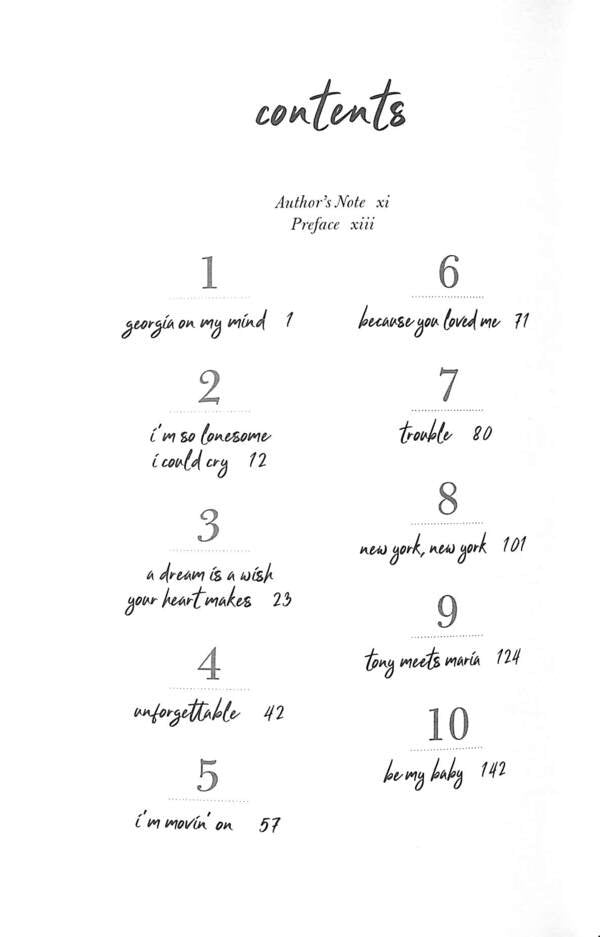 contents
Author's Note xi
Preface xiii
1
georgia on my mind 1
2
i'm so lonesome
i could cry 12
3
a dream is a wish
your heart makes 23
4
unforgettable 42
5
i'm movin' on 57
6
because you loved me 71
7
trouble 80
8
new york, new york 101
9
tony meets maria 124
10
be my baby 142